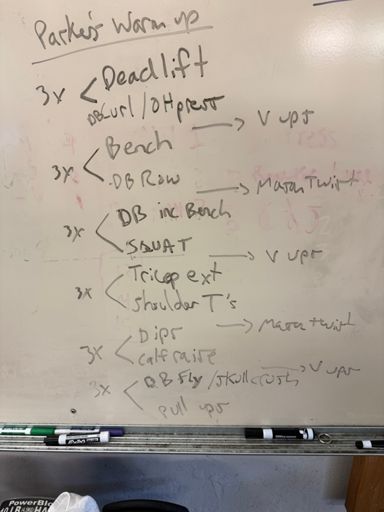 Parker's Warm up
3x < Deadlift
DB Curl / OH press → V ups
3x < Bench
DB Row → Mason Twist
3x < DB inc Bench
SQUAT → V ups
3x < Tricep ext
Shoulder T's → Mason twist
3x < Dips
calf raise → V ups
3x < DB fly / skull crush
pull ups
PowerBl